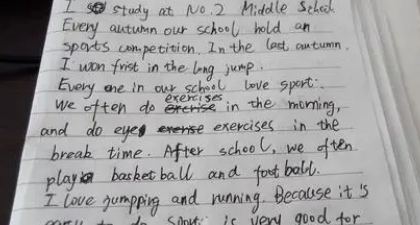 I study at No.2 Middle School.
Every autumn our school hold an
sports competition. In the last autumn.
I won frist in the long jump.
Every one in our school love sport.
We often do exercises in the morning,
and do eye exercises in the
break time. After school, we often
play basketball and football.
I love jumpping and running. Because it's
to do sport is very good for